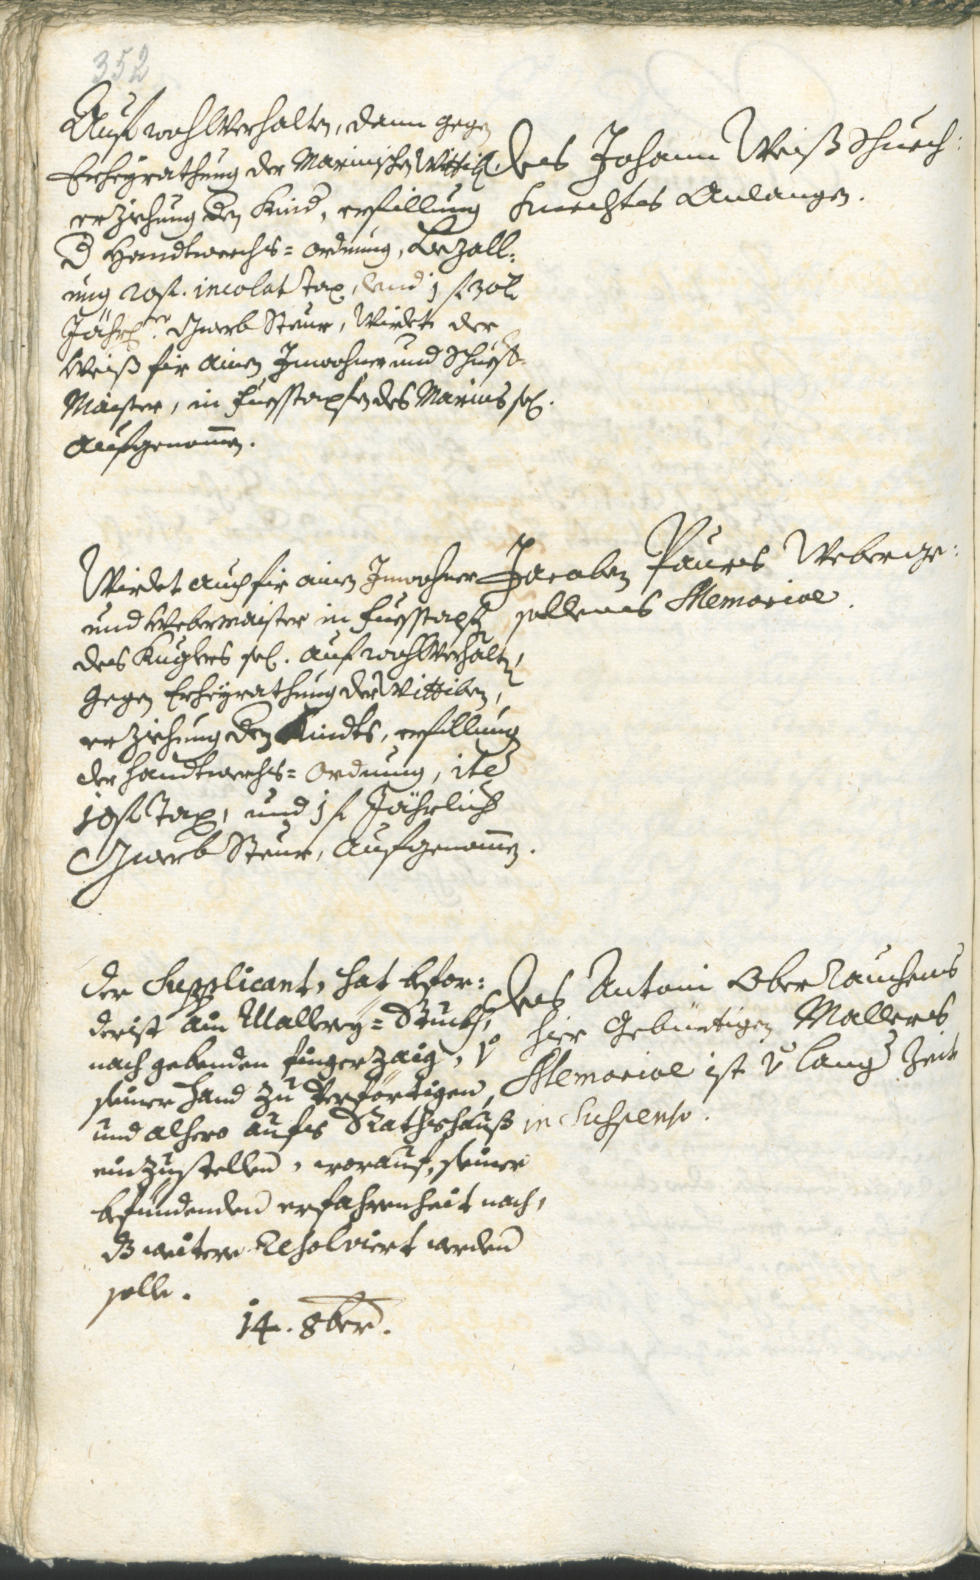 352
Auf wohlverhalten, dann gegen
Erheyrathung der Marinischen Wittib,
erziehung den Kind, erfüllung
d Handtwerchs= ordnung, Bezall:
ung 20 fl. incolat Tax, und 1 fl 30 k
Jährl: Gwerb Steur, Wirdt der
Weiß für ainen Inwohner und Schuest
Maister, in fuesstapfen des Marins sel.
aufgenommen.
des Johann Weiß Schuech:
knechtes Anlangen.
Wirdet auch für ainen Inwohner
und Webermaister in fuesstapfen
des Kuglers sel. auf wohlverhalten,
gegen Erheyrathung der Wittiben,
erziehung den Kindts, erfüllung
der handtwerchs= ordnung, ite
10 fl Tax, und 1 fl Jährlich
Gwerb Steur, aufgenommen.
Jacoben Paurs Weberge:
sellens Memorial.
der Supplicant, hat befor:
derist ain Mallerey= Stuckh,
nach gebenden fingerzaig, v
seiner hand zu verförtigen,
und alhero aufs Rathshauß
einzustellen, worauf, seiner
befundenden erfahrenheit nach,
dz weitere Resolviert werden
solle.
14. 8ber.
des Antoni Oberrauchens
hier gebürtigen Mallers
Memorial ist v lang Zeit
in Suspenso.